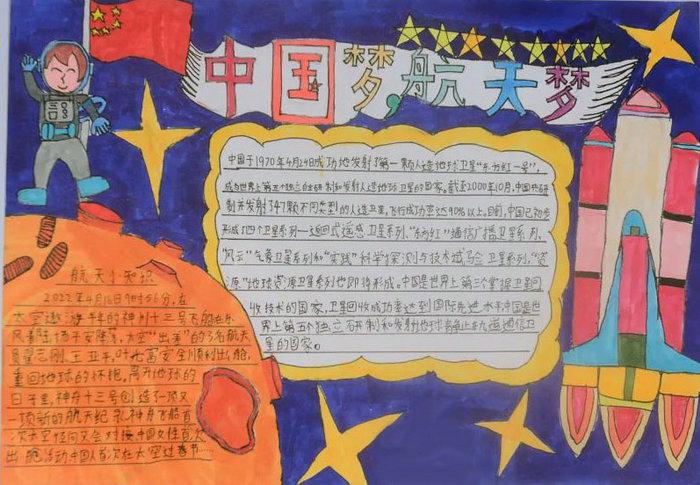 中国梦,航天梦
中国于1970年4月24日成功地发射了第一颗人造地球卫星"东方红一号",
成为世界上第五个独立自主研制和发射人造地球卫星的国家。截至2000年10月,中国共研
制并发射了47颗不同类型的人造卫星,飞行成功率达90%以上。目前,中国已初步
形成了四个卫星系列—返回式遥感卫星系列、"东方红"通信广播卫星系列、
"风云"气象卫星系列和"实践"科学探测与技术试验卫星系列,"资
源"地球资源卫星系列也即将形成。中国是世界上第三个掌握卫星回
收技术的国家,卫星回收成功率达到国际先进水平中国是世
界上第五个独立研制和发射地球静止轨道通信卫
星的国家。
航天小知识
2022年4月16日9时56分,在
太空遨游半年的神州十三号飞船在东
风着陆场平安降落,太空"出差"的3名航天
员翟志刚、王亚平、叶光富安全顺利出舱,
重回地球的怀抱。离开地球的
日子里,神舟十三号创造了一项又
一项新的航天纪录神舟飞船首
次太空径向交会对接中国女性首次
出舱活动中国人首次在太空过春节……